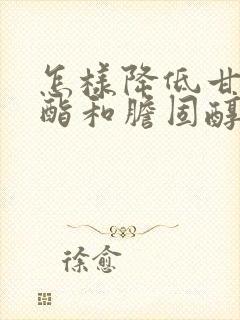 怎样降低甘
酯和胆固醇
徐愈